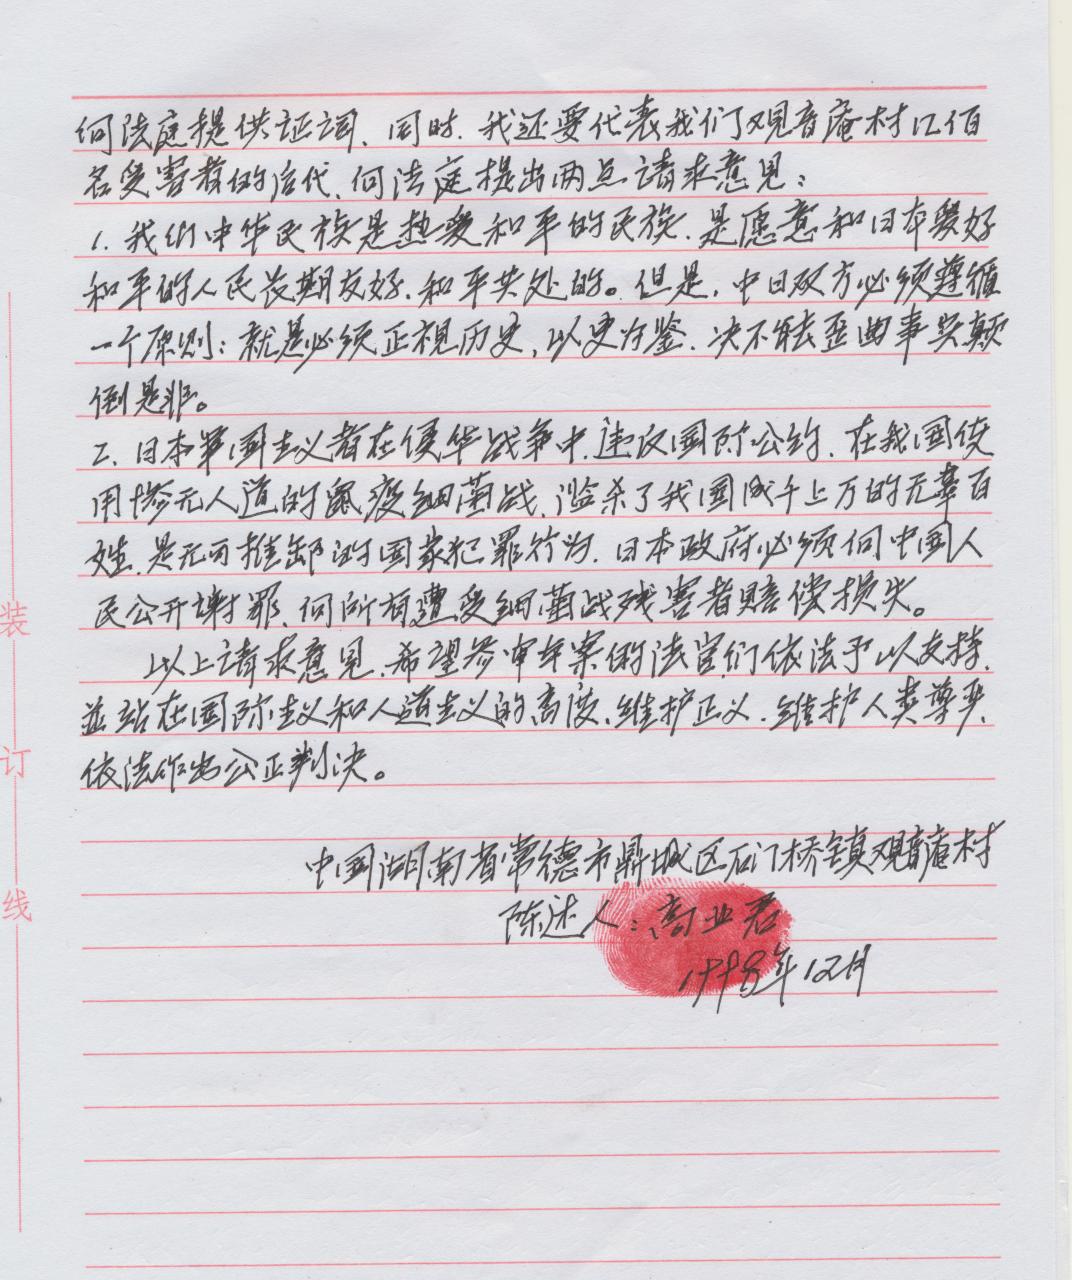 向法庭提供证词、同时、我还要代表我们观音庵村几佰
名受害者的后代、向法庭提出两点请求意见：
1、我们中华民族是热爱和平的民族、是愿意和日本爱好
和平的人民长期友好、和平共处的。但是，中日双方必须遵循
一个原则：就是必须正视历史，以史为鉴、决不能歪曲事实颠
倒是非。
二、日本军国主义者在侵华战争中，违议国际公约，在我国使
用惨无人道的鼠疫细菌战、滥杀了我国成千上万的无辜百
姓、是无可推卸的国家犯罪行为、日本政府必须向中国人
民公开谢罪、向所有遭受细菌战残害者赔偿损失。
以上请求意见、希望参审本案的法官们依法予以支持、
并站在国际主义和人道主义的高度、维护正义、维护人类尊严、
依法作出公正判决。
中国湖南省常德市鼎城区石门桥镇观音庵村
陈述人：高业君
1998年12月
装
订
线